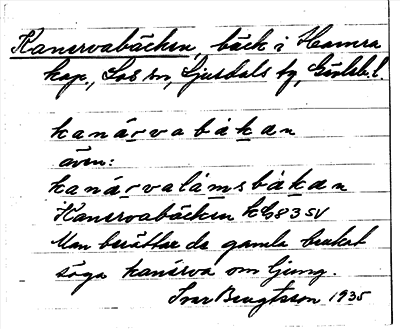 Kanervabäcken, bäck i Hamra
kap., Los sn, Ljusdals tg, Gävleb. l.
kanärvabäkan
även:
kanärvalámsbäkan
Kanervabäcken 83 SV
Man berättar de gamla brukat
säga kanärva om ljung.
Ivar Bengtsson 1935